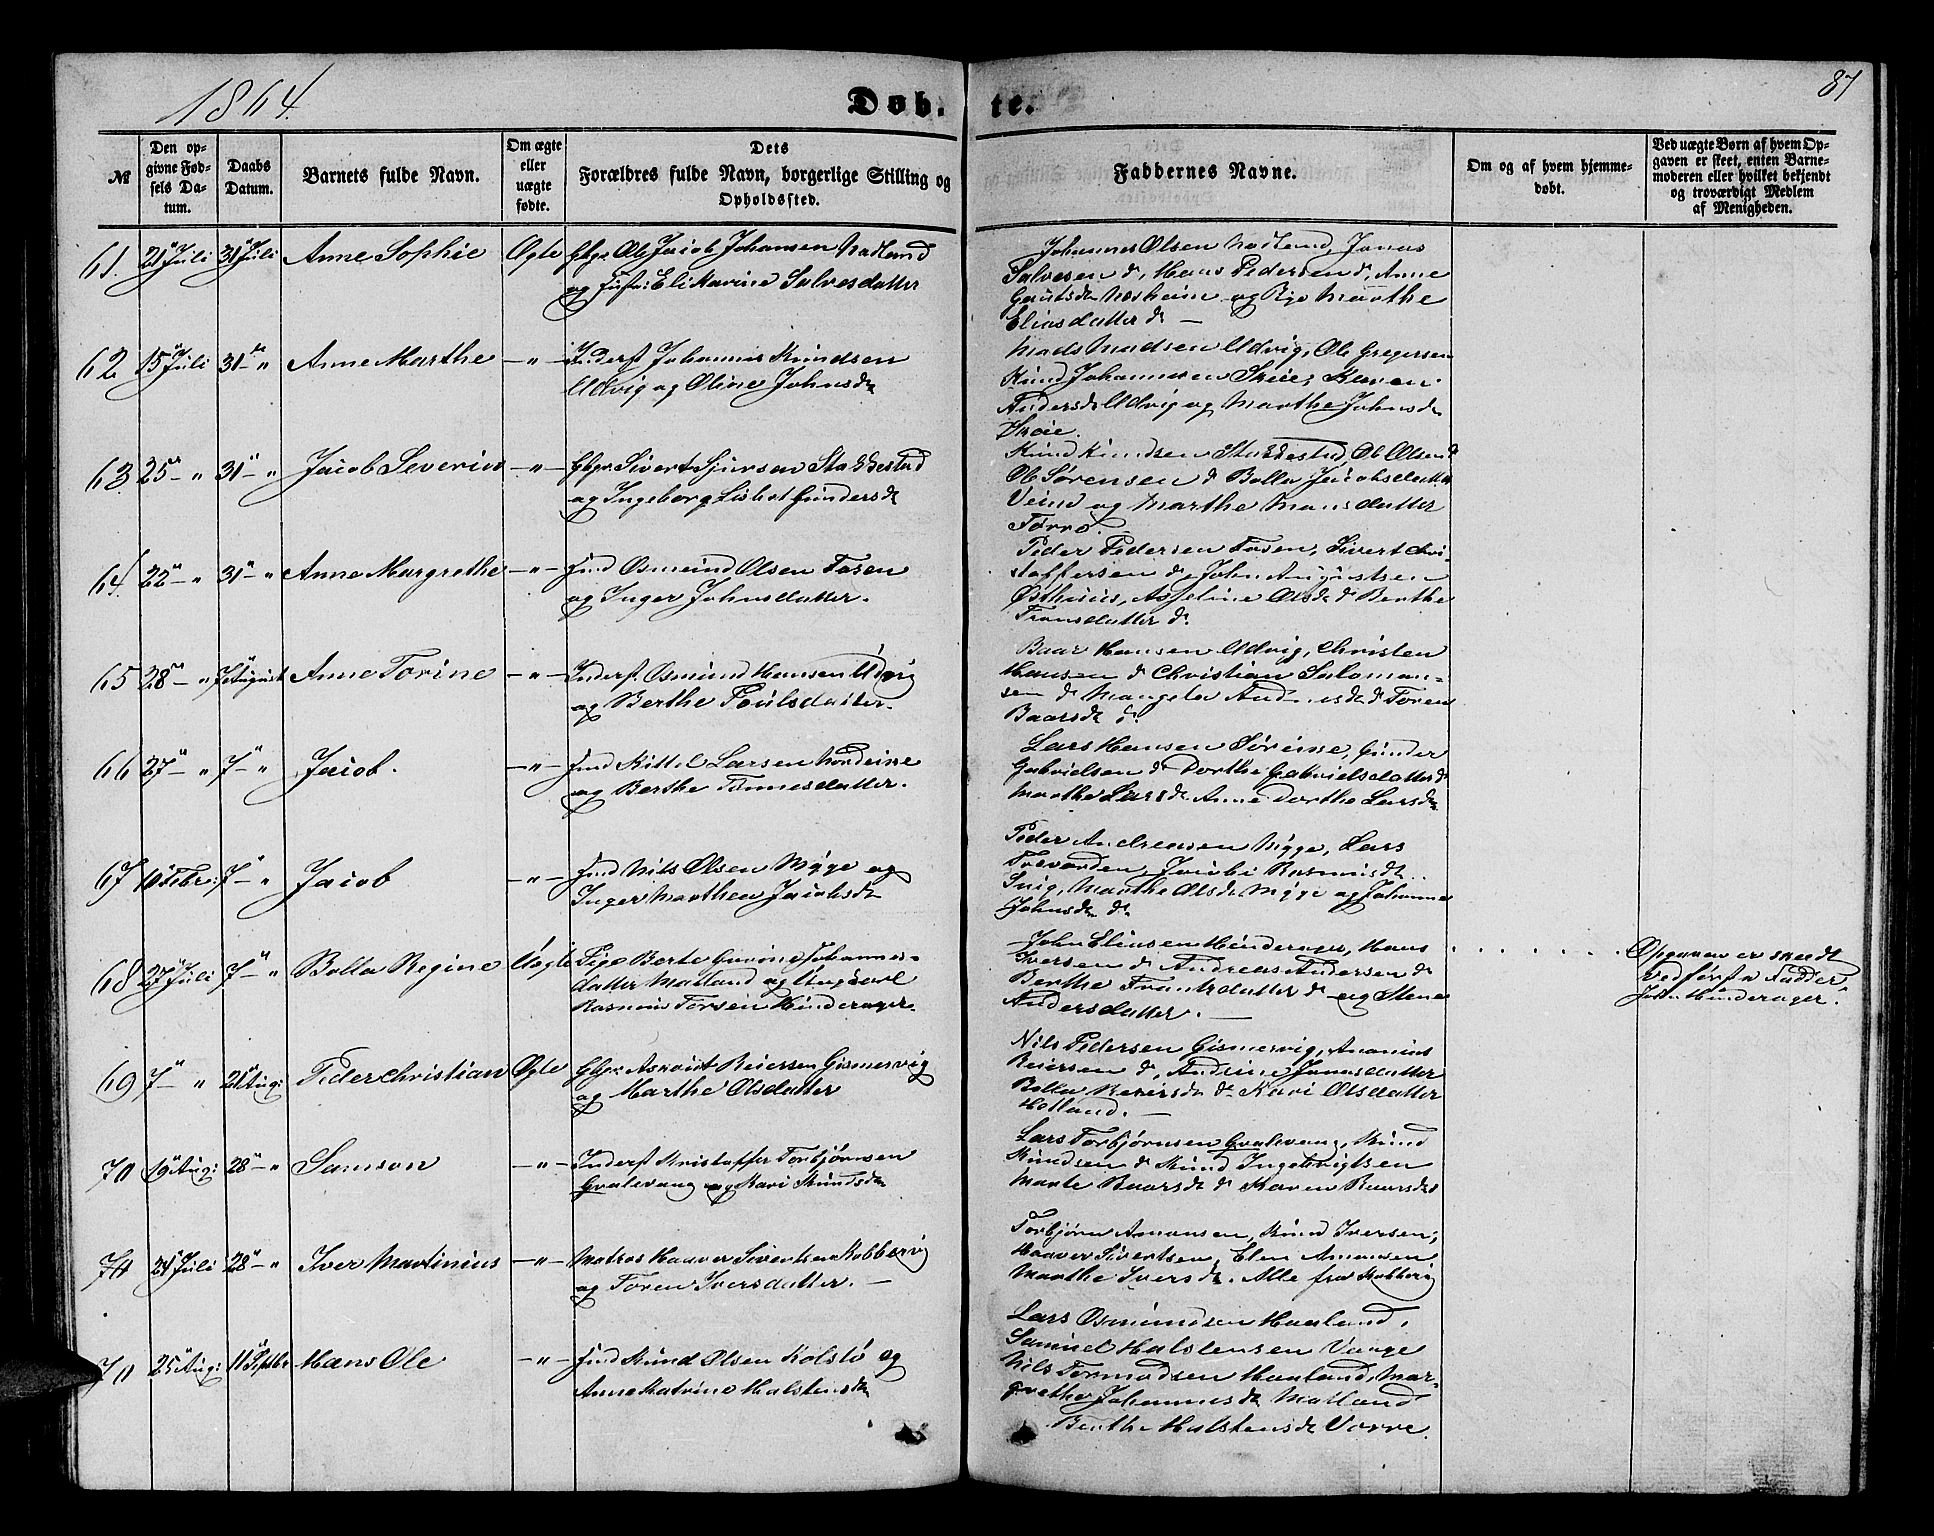 1864.
Døb-
te.
87
№
Den op-
givne Fød-
sels Da-
tum.
Daabs
Datum.
Barnets fulde Navn.
Om ægte
eller
uægte
fødte.
Dets
Forældres fulde Navn, borgerlige Stilling og
Opholdssted.
Faddernes Navne.
Om og af hvem hjemme-
døbt.
Ved uægte Børn af hvem Op-
gaven er skeet, enten Barne-
moderen eller hvilket bekjendt
og troværdigt Medlem
af Menigheden.
61. 21 Juli 31 Juli Anne Sophie Ægte Gbgr Ole Jacob Johansen Nadland
og Hust: Eli Karine Salvesdatter
Johannes Olsen Nodland, Jonas
Salvesen do, Hans Pedersen do, Anne
Gautsdr Nesheim og Pige Marthe
Eliasdatter do —
62 15 Juli 31te " Anne Marthe — " — Inderst Johannes Knudsen
Udvig og Oline Johnsdr
Mads Madsen Udvig, Ole Gregersen
Knud Johannesen Skeie, Karen
Andersdr Udvig og Marthe Johnsd
Skeie.
63. 25 — " 31 — " Jacob Severin — " — Gbgr Sivert Sjursen Stakkestad
og Ingeborg Lisbet Gundersdr
Knud Knudsen Stakkestad, Ole Olsen do
Ole Sørensen do Bolla Jacobsdatter
Veim og Marthe Mansdatter
Førre.
64. 22 — " 31 — " Anne Margrethe — " — Jmd Osmund Olsen Fosen
og Inger Johnsdatter.
Peder Pedersen Fosen, Sivert Chri-
stoffersen do, John Augustsen
Østhuus, Asseline Olsdr do Berthe
Fransdatter do.
65 28 — " 7 August Anne Torine — " — Inderst Osmund Hansen Udvig
og Berthe Poulsdatter.
Baar Hansen Udvig, Christen
Hansen do Christian Saloman-
sen do Mangela do Toren
Baarsdr do.
66 27 — " 7 — " Jacob. — " — Jmd Kittel Larsen Nordeine
og Berthe Tønnesdatter.
Lars Hansen Søreine, Gunder
Gabrielsen do Dorthe Gabrielsdatter do
Marthe Larsdr Anne Dorthe Larsdr
67 10 Febr: 7 — " Jacob — " — Jmd Nils Olsen Myge og
Inger Marthea Jacobsdr
Peder Andreasen Nygge, Lars
Jacobe Rasmusdr
Snig, Marthe Olsdr Myge og Johanne
Johnsdr do.
68 27 Juli 7 — " Bolla Regine Uægte Pige Berte Gurine Johannes-
datter Matland og Ungkarl
Rasmus Torsen Hinderager.
John Eliasen Hinderager, Hans
Iversen do Andreas Andersen do
Berthe Frantzdatter do og Stene
Andersdatter. —
Opgaven er skeedt
ved første Fadder,
John Hinderager.
69 7 — " 21 Aug: Peder Christian Ægte Gbgr: Asbvidt Reiersen Gismervig
og Marthe Olsdatter
Nils Pedersen Gismervig, Ananias
Reiersen do, Andrine Jonasdatter
Bolla Reiersdr do Kari Olsdatter
Holland. —
70 19 Aug: 28 — " Samson — " — Inderst Kristoffer Torbjørnsen
Gvalevang og Kari Knudsdr
Lars Torbjørnsen Gvalevang, Knud
Knudsen do Knud Ingebrigtsen
Marte Baarsdr do Karen Baarsdr
71 24 Juli 28 — " Iver Martinius — " — Matros Haaver Sivertsen Kobbevig
og Toren Iversdatter. —
Torbjørn Amansen, Knud Iversen,
Haaver Sivertsen, Elen Amansen
Marthe Iversdr. Alle fra Kobbevig
70 25 Aug: 11 Septbr Hans Ole — " — Jmd Knud Olsen Kolstø og
Anne Katrine Halstensdr
Lars Osmundsen Haaland,
Samuel Halstensen Vorge
Nils Tormodsen Haaland, Mar-
grethe Johannesdr Matland
Berthe Halstensdr Vorre.